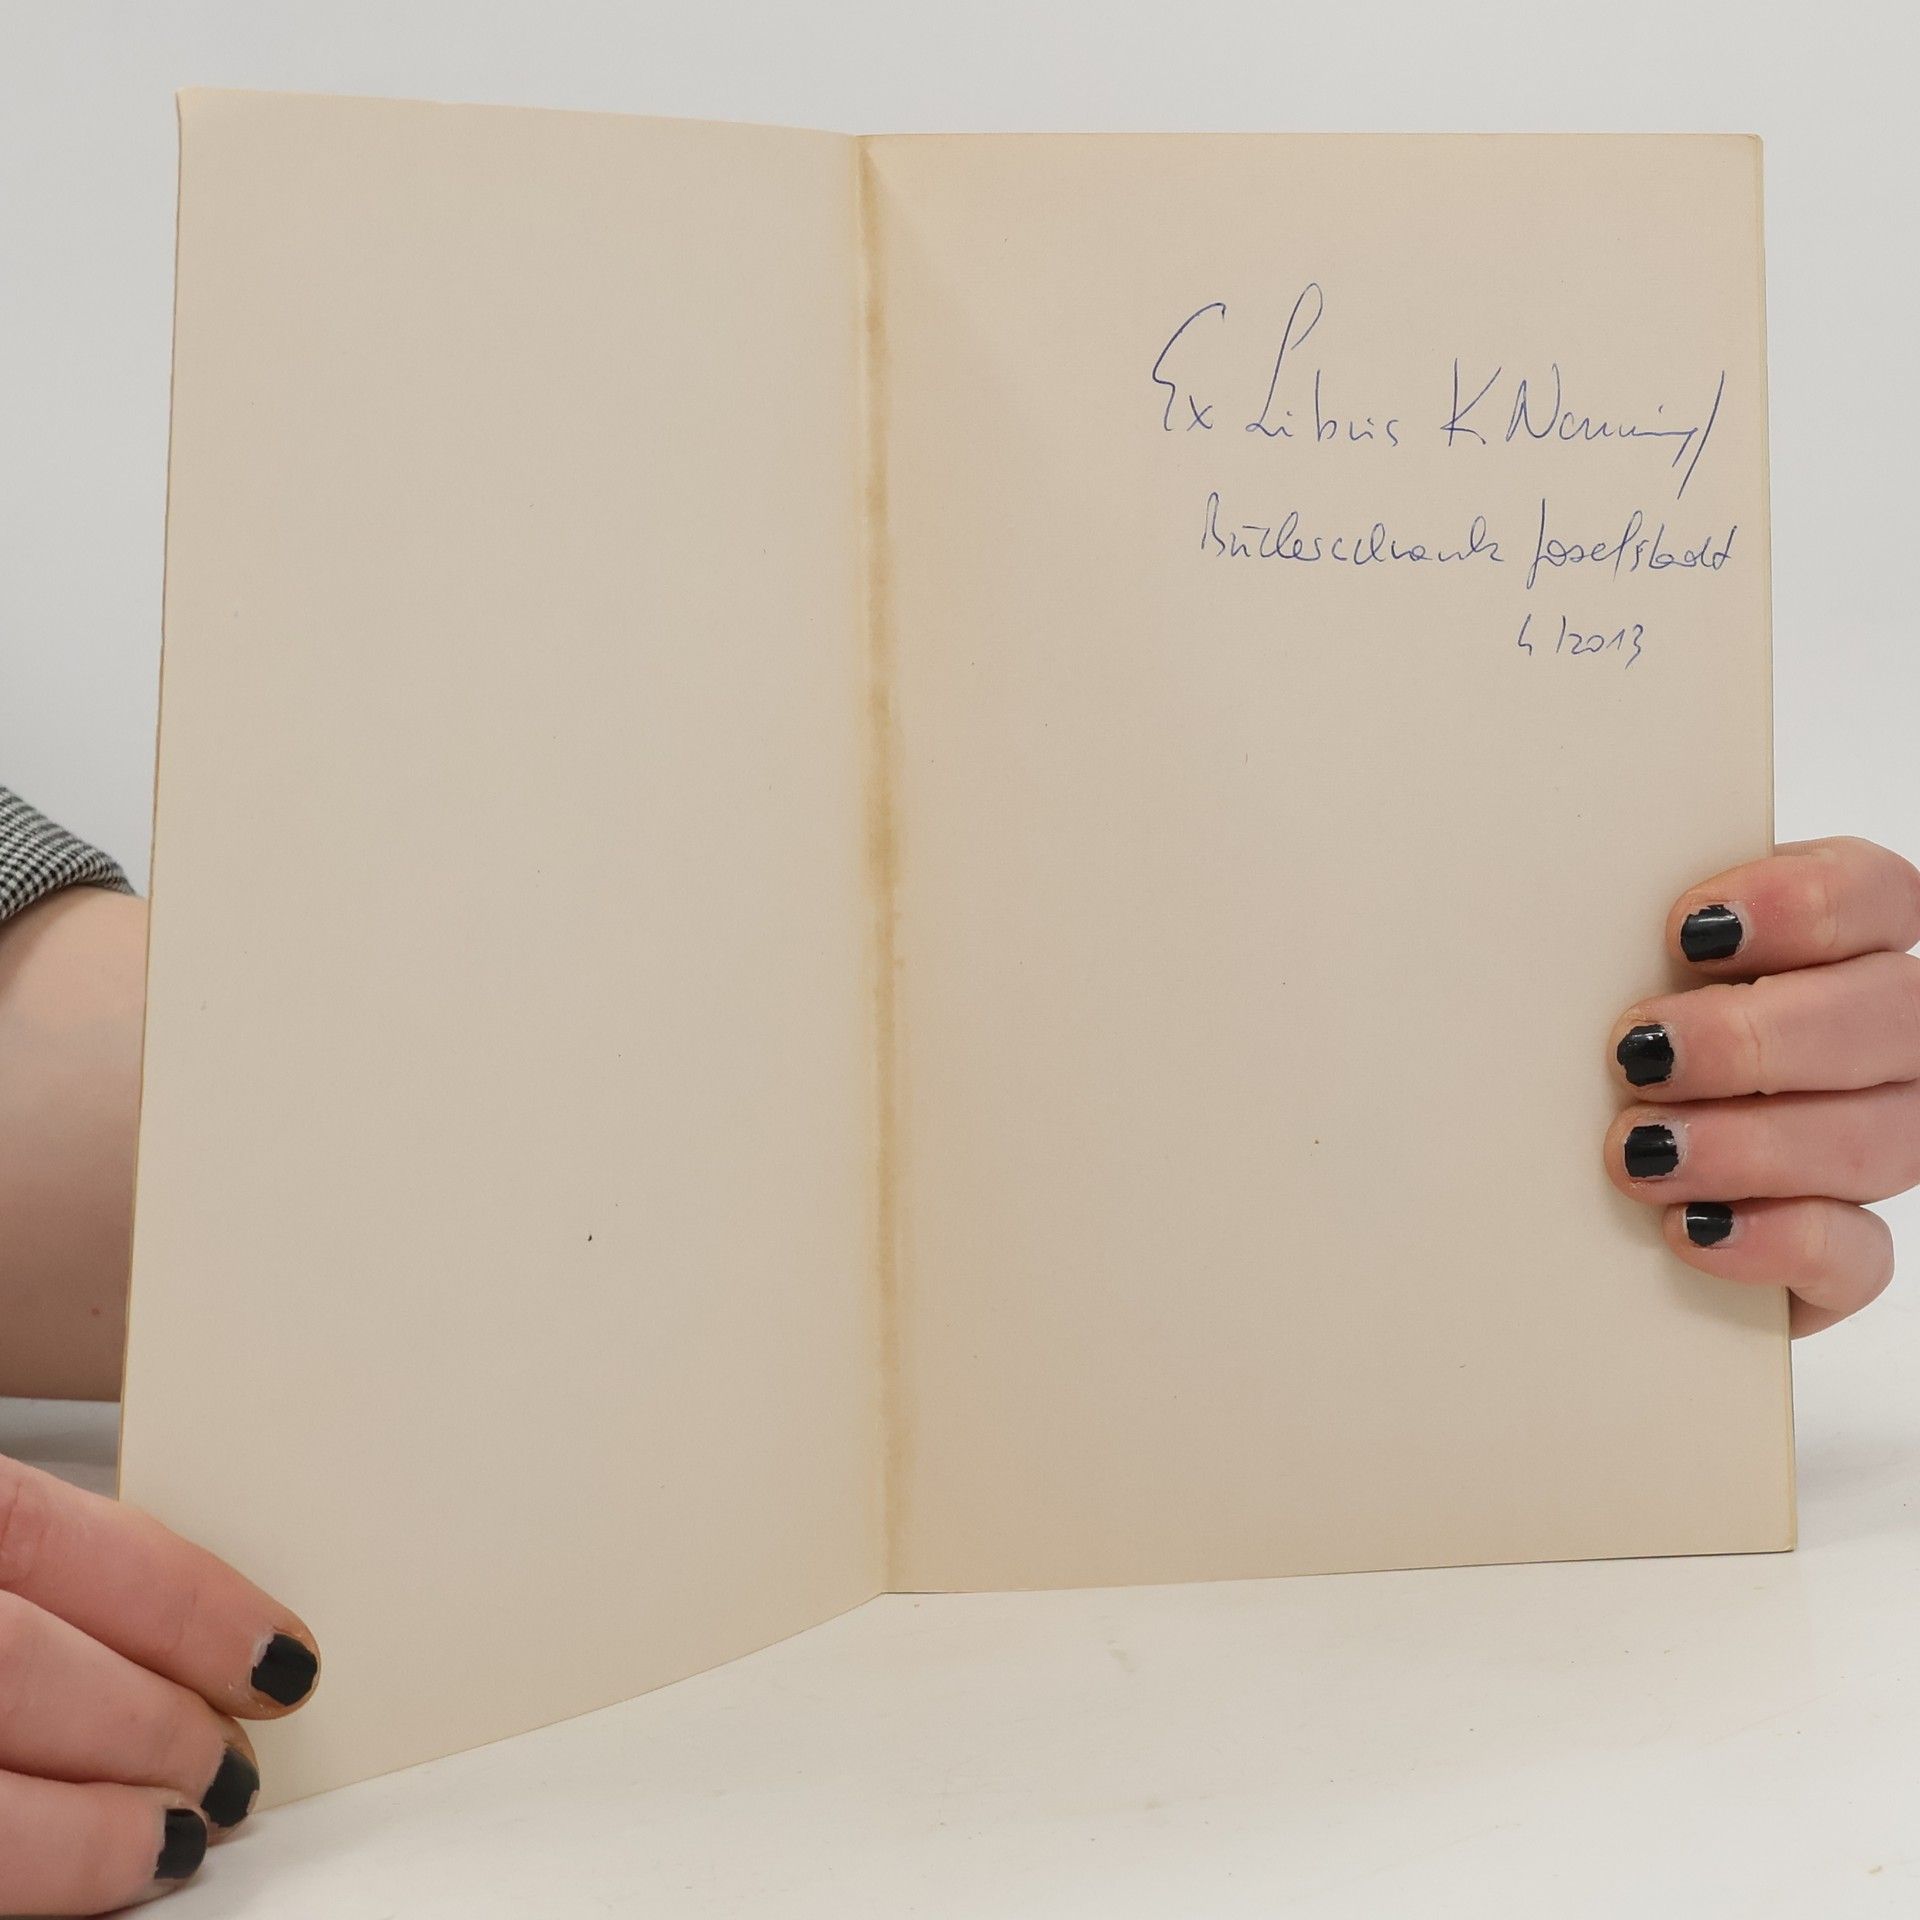 Ex Libris K
Bücherschrank Josefstadt
4/2013